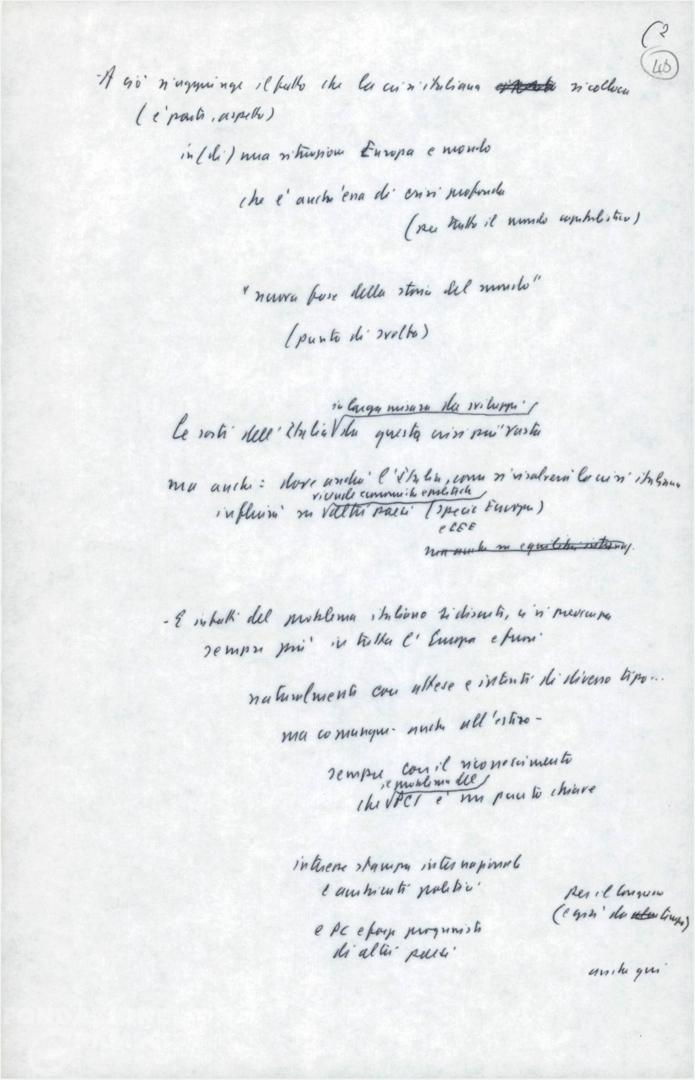 C2
40
- A ciò si aggiunge il fatto che la crisi italiana si colloca
(è parte, aspetto)
in (di) una situazione Europa e mondo
che è anch'essa di crisi profonda
(per tutto il mondo capitalistico)
"nuova fase della storia del mondo"
(punto di svolta)
in larga misura da sviluppi
le sorti dell'Italia da questa crisi più vasta
ma anche: dove andrà l'Italia, come si risolverà la crisi italiana
vicende economiche e politiche
influirà su altri paesi (specie Europa)
e CEE
- E infatti del problema italiano si discute, ci si preoccupa
sempre più in tutta l'Europa e fuori
naturalmente con attese e intenti di diverso tipo...
ma comunque - anche all'estero -
sempre con il riconoscimento
il problema del
che PCI è un punto chiave
interesse stampa internazionale
e ambienti politici
e PC e forze progressiste
di altri paesi
per il Congresso
(e già da tempo)
anche qui